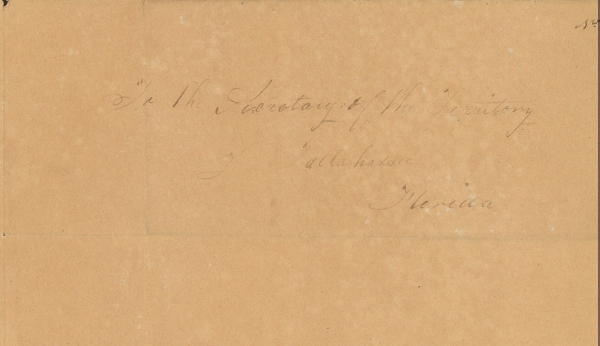 To the Secretary of the Territory
Tallahassee
Florida